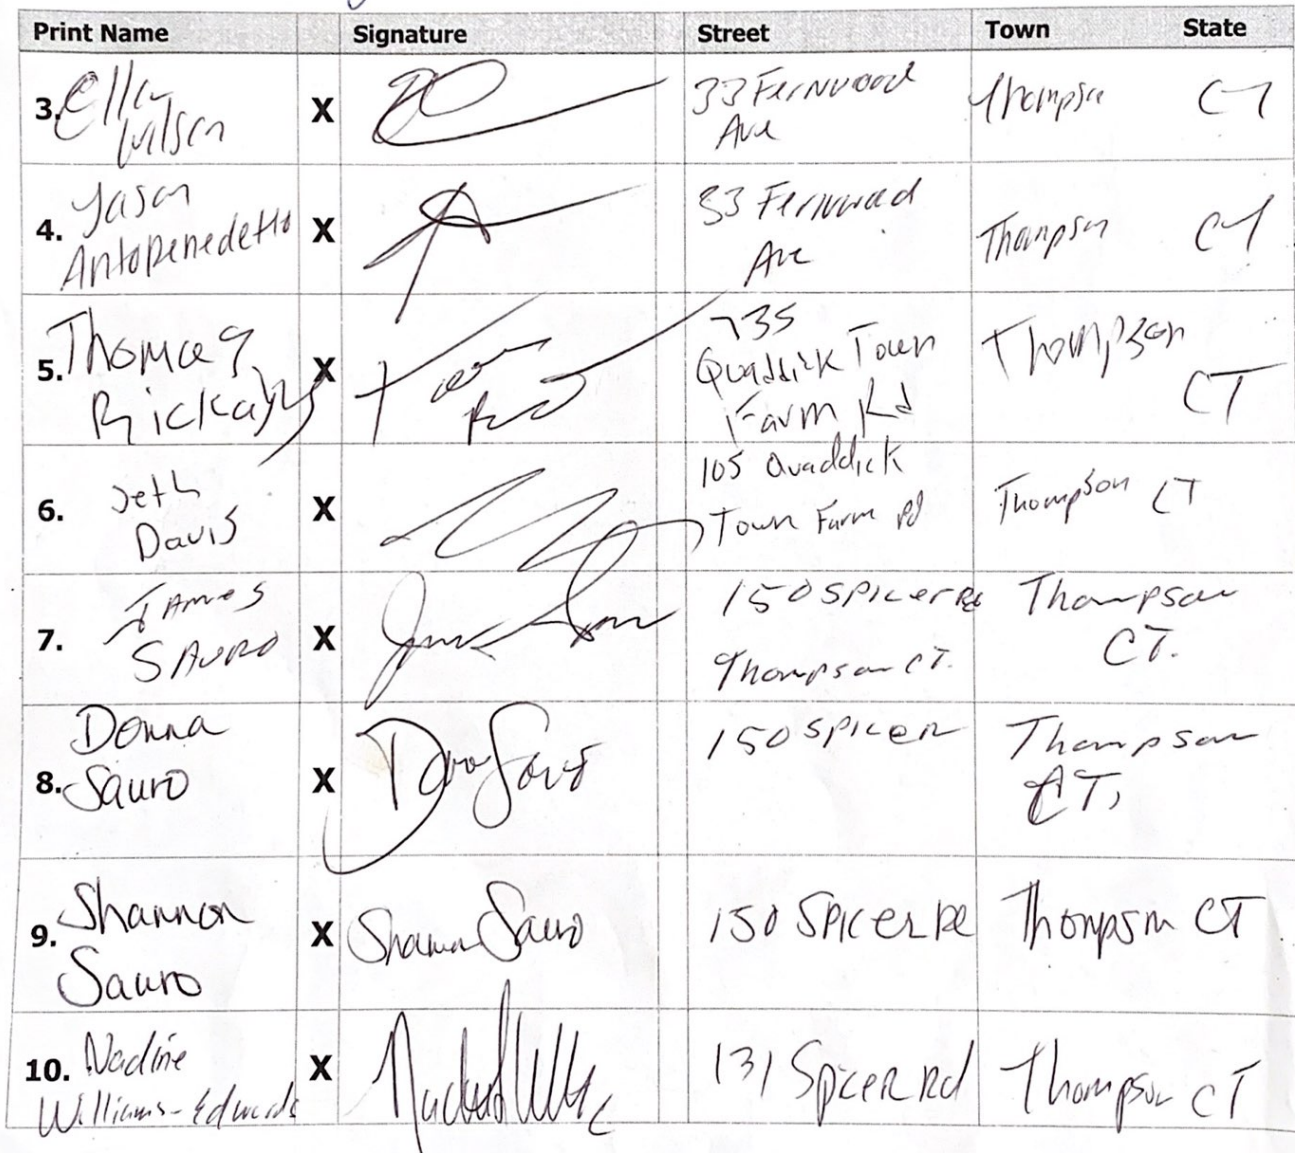 Print Name Signature Street Town State
3. Ella Wilson X 33 Fernwood Ave Thompson CT
4. Jason Antopenedetto X 33 Fernwood Ave Thompson CT
5. Thomas X 735 Quaddick Town Farm Rd Thompson CT
6. Seth Davis X 105 Quaddick Town Farm Rd Thompson CT
7. James Sauro X 150 Spicer Rd Thompson CT. Thompson CT.
8. Donna Sauro X 150 Spicer Thompson CT,
9. Shannon Sauro X Shannon Sauro 150 Spicer Rd Thompson CT
10. Nadine Williams-Edwards X 131 Spicer Rd Thompson CT